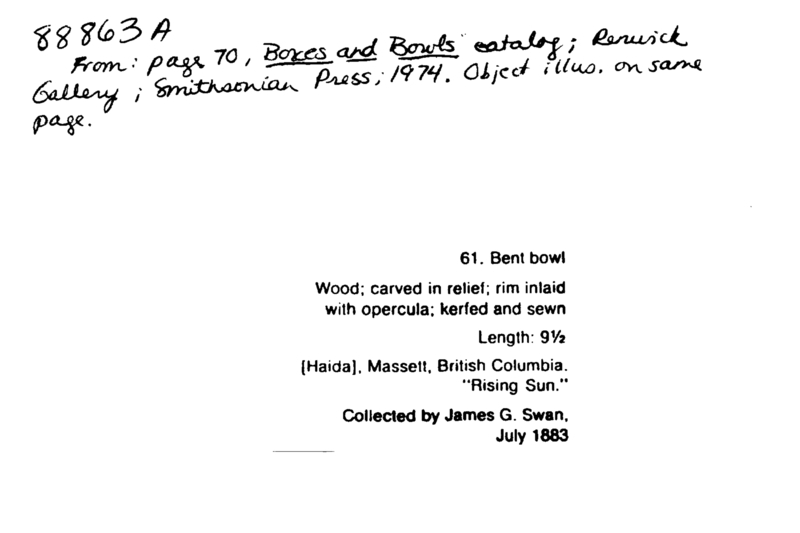 88863A
From: page 70, Boxes and Bowls catalog; Renwick
Gallery; Smithsonian Press; 1974. Object illus. on same
page.
61. Bent bowl
Wood; carved in relief; rim inlaid
with opercula; kerfed and sewn
Length: 9½
[Haida], Massett, British Columbia.
"Rising Sun."
Collected by James G. Swan,
July 1883